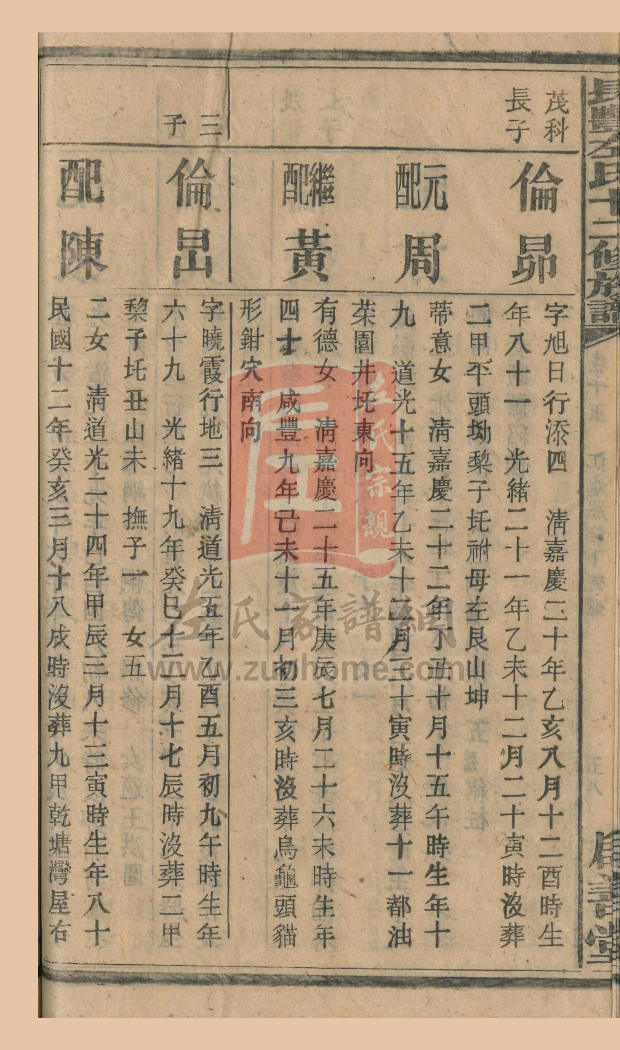 長豐左氏十二修族譜
茂科
長子
倫昴
字旭日行添四 清嘉慶二十年乙亥八月十二酉時生
年八十一 光緒二十一年乙未十二月二十寅時沒葬
二甲平頭坳黎子圫祔母左艮山坤
元配周
蒂意女 清嘉慶二十二年丁丑十月十五午時生年十
九 道光十五年乙未十二月三十寅時沒葬十一都油
茱園井圫東向
繼配黃
有德女 清嘉慶二十五年庚辰七月二十六未時生年
四十 咸豐九年己未十一月初三亥時沒葬烏龜頭貓
形鉗穴南向
三子
倫昌
字曉霞行地三 清道光五年乙酉五月初九午時生年
六十九 光緒十九年癸巳十二月十七辰時沒葬二甲
黎子圫丑山未 撫子一 女五
配陳
二女 清道光二十四年甲辰三月十三寅時生年八十
民國十二年癸亥三月十八戌時沒葬九甲乾塘灣屋右
左氏家譜網
www.zuojiahome.com
左氏宗親